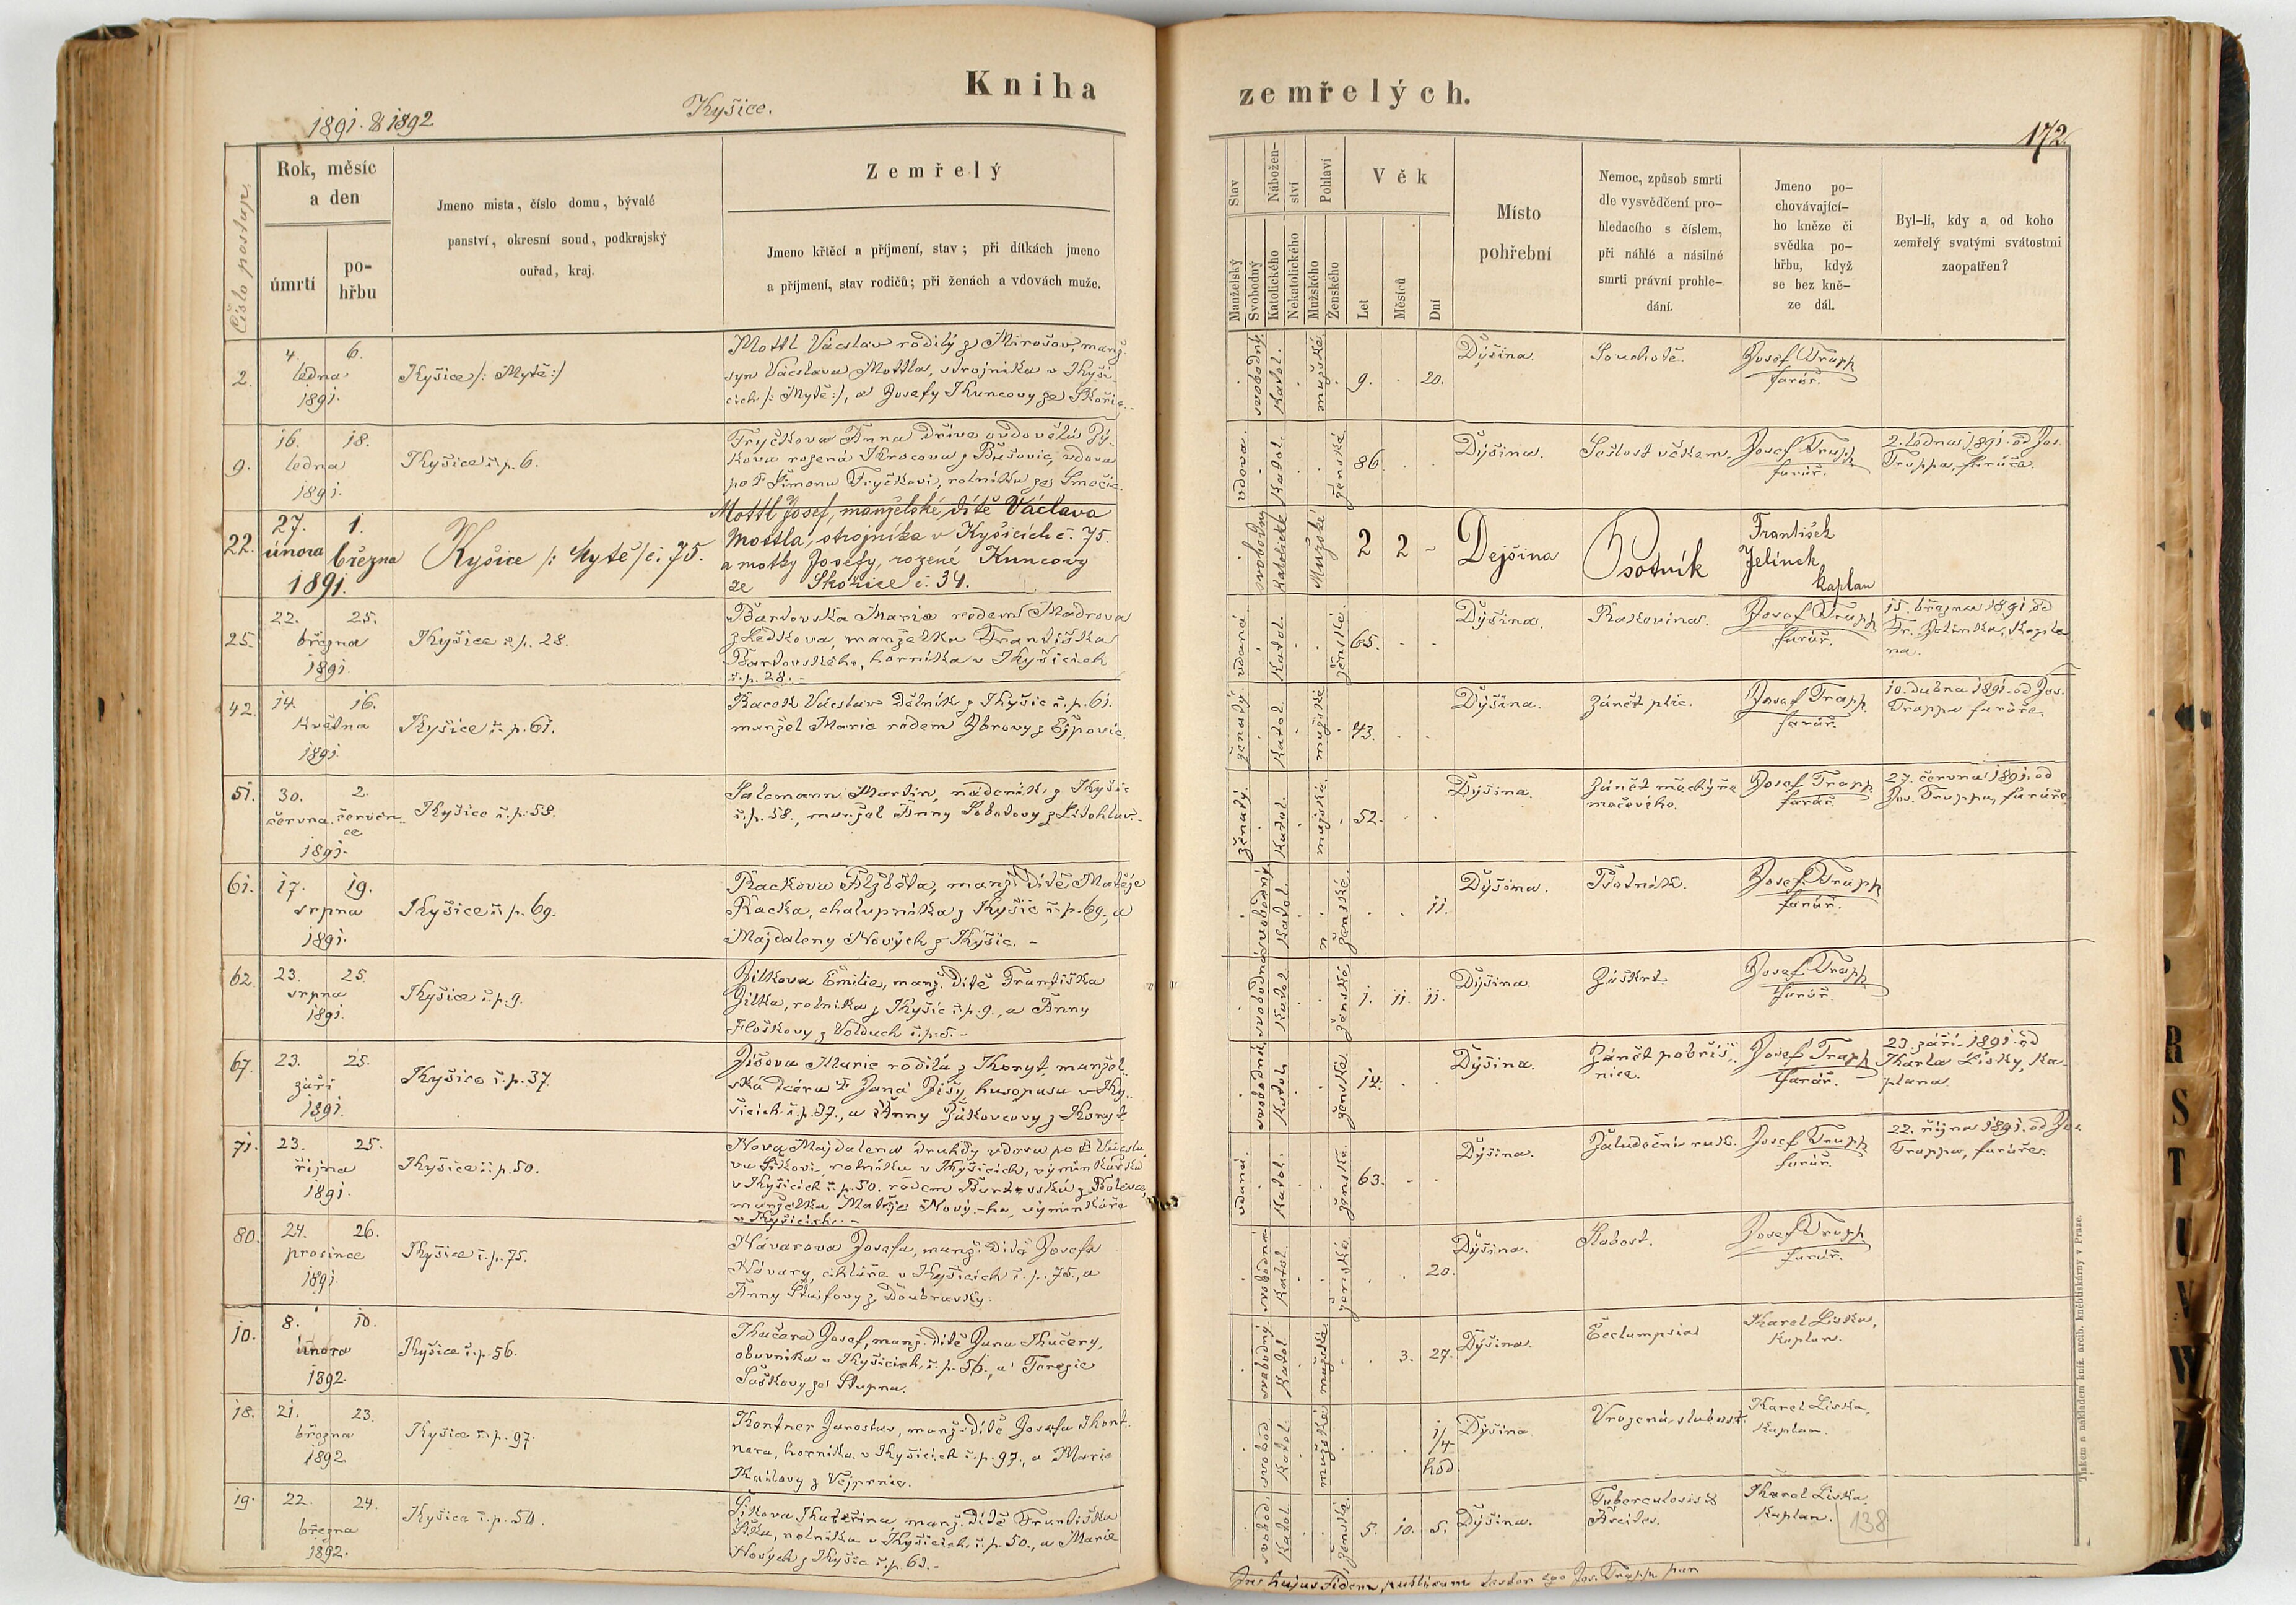 Kniha zemřelých.
1891. & 1892
Kyšice.
172.
Číslo postup.
Rok, měsíc
a den
úmrtí
po-
hřbu
Jmeno místa, číslo domu, bývalé
panství, okresní soud, podkrajský
ouřad, kraj.
Zemřelý
Jmeno křtěcí a příjmení, stav; při dítkách jmeno
a příjmení, stav rodičů; při ženách a vdovách muže.
Stav
Manželský
Svobodný
Nábožen-
ství
Katolického
Nekatolického
Pohlaví
Mužského
Ženského
Věk
Let
Měsíců
Dní
Místo
pohřební
Nemoc, způsob smrti
dle vysvědčení pro-
hledacího s číslem,
při náhlé a násilné
smrti právní prohle-
dání.
Jmeno po-
chovávající-
ho kněze či
svědka po-
hřbu, když
se bez kně-
ze dál.
Byl-li, kdy a od koho
zemřelý svatými svátostmi
zaopatřen?
2.
4. 6.
ledna
1891.
Kyšice /: Mýtě :/
Mottl Václav rodilý z Mirošov, manž.
syn Václava Mottla, strojníka v Kyši-
cích /: Mýtě :/, a Josefy Kuncovy ze Skořic.
svobodný. Katol. mužské. 9. . 20.
Dýšina. Souchotě. Josef Trapp
farář.
9.
16. 18.
ledna
1891.
Kyšice č. p. 6.
Tryčkova Anna dříve ovdovělá
kova rozená z Bušovic, vdova
po † Šimonu Tryčkovi, rolníku ze Směčic.
vdova. Katol. ženské. 86. . .
Dýšina. Sešlost věkem. Josef Trapp
farář.
2. ledna 1891. od Jos.
Trappa, faráře.
22.
27. 1.
února března
1891.
Kyšice /: Mýtě / č. 75.
Mottl Josef, manželské dítě Václava
Mottla, strojníka v Kyšicích č. 75.
a matky Josefy, rozené Kuncovy
ze Skořice č. 34.
svobodný Katolické Mužské 2 2 -
Dejšina Psotník František
Jelínek
kaplan
25.
22. 25.
března
1891.
Kyšice č. p. 28.
Bartovska Marie rodem Mádrova
z Létkova, manželka Františka
Bartovského, horníka v Kyšicích
č. p. 28. -
vdaná. Katol. ženské. 65. . .
Dýšina. Rakovina. Josef Trapp
farář.
15. března 1891. od
Fr. Jelínka, kapla-
na.
42.
14. 16.
května
1891.
Kyšice č. p. 61.
Racek Václav dělník z Kyšic č. p. 61.
manžel Marie rodem Zbrovy z Ejpovic.
ženatý. Katol. mužské 43. . .
Dýšina. Zánět plic. Josef Trapp
farář.
10. dubna 1891. od Jos.
Trappa faráře.
51.
30. 2.
června. červen-
ce
1891.
Kyšice č. p. 58.
Salcmann Martin, nádeník z Kyšic
č. p. 58., manžel Anny Sobotovy z Litohlav. -
ženatý. Katol. mužské. 52. . .
Dýšina. Zánět měchýře
močového. Josef Trapp
farář.
27. června 1891. od
Jos. Trappa, faráře.
61.
17. 19.
srpna
1891.
Kyšice č. p. 69.
Rackova Alžběta, manž. dítě Matěje
Racka, chalupníka z Kyšic č. p. 69., a
Majdaleny Nových z Kyšic. -
svobodný. Katol. ženské. . . 11.
Dýšina. Psotník. Josef Trapp
farář.
62.
23. 25.
srpna
1891.
Kyšice č. p. 9.
Jílkova Emilie, manž. dítě Františka
Jílka, rolníka z Kyšic č. p. 9., a Anny
Floškovy z Volduch č. p. 5. -
svobodná Katol ženské 1. 11. 11.
Dýšina. Záškrt Josef Trapp
farář.
67.
23. 25.
září
1891.
Kyšice č. p. 37.
Jíšova Marie rodilá z Koryt, manžel-
ská dcera † Jana Jíšy, husopasa v Ky-
šicích č. p. 37., a Anny z Koryt
svobodná. Katol. ženské. 14. . .
Dýšina. Zánět pobřiš-
nice. Josef Trapp
farář.
23. září 1891. od
Karla Lisky, ka-
plana.
71.
23. 25.
října
1891.
Kyšice č. p. 50.
Nová Majdalena druhdy vdova po † Václa-
vu Šikovi, rolníku v Kyšicích, výměnkářka
v Kyšicích č. p. 50. rodem Bartovská z Bolevce,
manželka Matěje Nový-ho, výměnkáře
v Kyšicích. -
vdaná. Katol. ženské. 63. . .
Dýšina. Žaludeční rak. Josef Trapp
farář.
22. října 1891. od Jos.
Trappa, faráře.
80.
24. 26.
prosince
1891.
Kyšice č. p. 75.
Návarova Josefa, manž. dítě Josefa
Návary, cihláře v Kyšicích č. p. 75., a
Anny Štuifovy z Doubravky.
svobodná Katol. ženské. . . 20.
Dýšina. Slabost. Josef Trapp
farář.
10.
8. 10.
února
1892.
Kyšice č. p. 56.
Kučera Josef, manž. dítě Jana Kučery,
obuvníka v Kyšicích, č. p. 56., a Terezie
Suškovy ze Stupna.
svobodný. Katol. mužské . 3. 27.
Dýšina. Ecclampsia Karel Liska,
kaplan.
18.
21. 23.
března
1892.
Kyšice č. p. 97.
Kontner Jaroslav, manž. dítě Josefa Kont-
nera, horníka v Kyšicích č. p. 97., a Marie
z Vejprnic.
svobod. Katol. mužské . . 1/4
hod.
Dýšina Vrozená slabost. Karel Liska,
kaplan.
19.
22. 24.
března
1892.
Kyšice č. p. 50.
Šikova Kateřina manž. dítě Františka
Šika, rolníka v Kyšicích č. p. 50., a Marie
Nových z Kyšic č. p. 63. -
svobod. Katol. ženské. 5. 10. 5.
Dýšina. Tuberculosis &
Ascites. Karel Liska,
kaplan.
138
In hujus fidem publicam testor ego Jos. Trapp par
Tiskem a nákladem kníž. arcib. knihtiskárny v Praze.
R
S
T
U
V
W